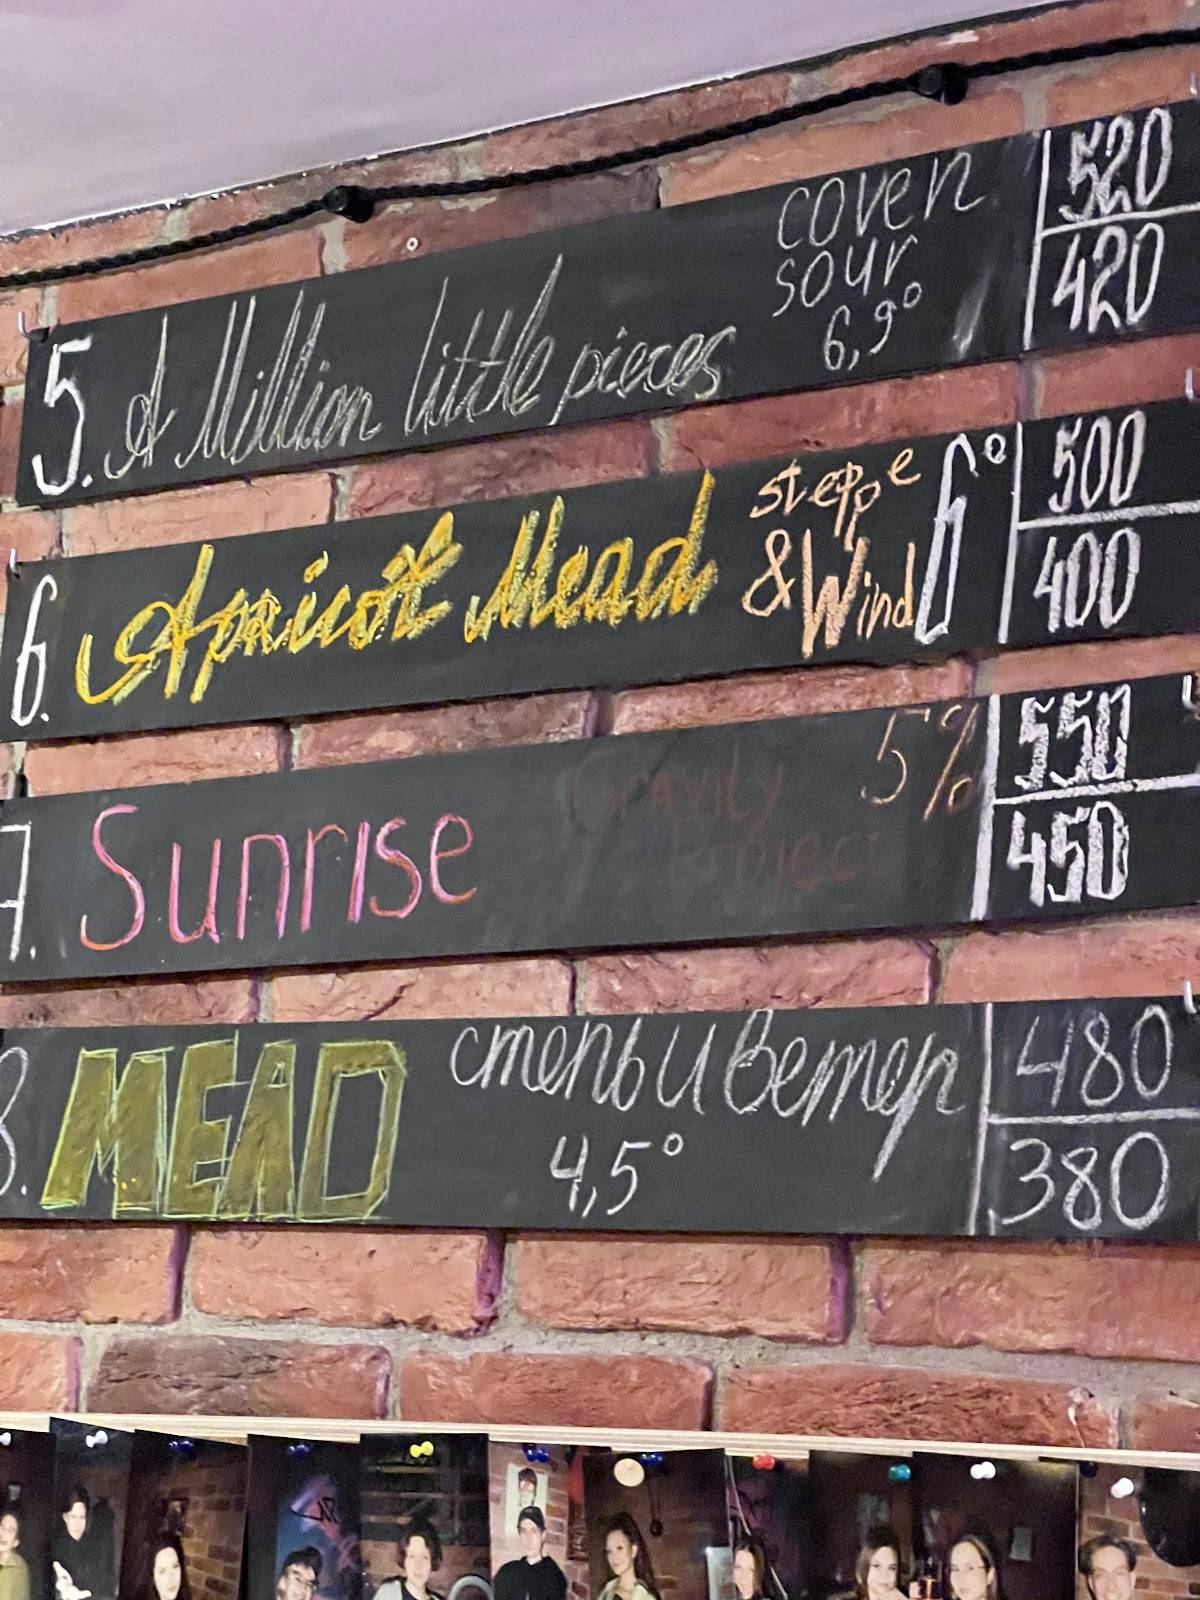 5. A Million little pieces
coven
sour
6,9°
520
420
6. Apricot Mead
steppe
& Wind
6°
500
400
7. Sunrise
Gravity
Project
5%
550
450
8. MEAD
степь и ветер
4,5°
480
380